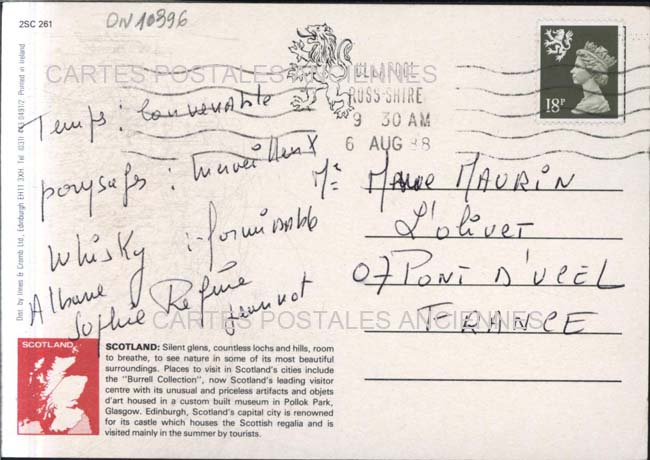 DN10396
2SC 261
CARTES POSTALES ANCIENNES
ULLAPOOL
ROSS-SHIRE
9 30 AM
6 AUG 88
18P
Temps : Convenable
paysages : merveilleux
Whisky : formidable
Albane
Sophie Régine
Jeannot
Me Maurin
L'olivet
07 PONT D'UCEL
FRANCE
CARTES POSTALES ANCIENNES
Dist. by Innes & Cromb Ltd., Edinburgh EH11 3XH. Tel. (031) 0491/2. Printed in Ireland
SCOTLAND
SCOTLAND: Silent glens, countless lochs and hills, room
to breathe, to see nature in some of its most beautiful
surroundings. Places to visit in Scotland's cities include
the "Burrell Collection", now Scotland's leading visitor
centre with its unusual and priceless artifacts and objets
d'art housed in a custom built museum in Pollok Park,
Glasgow. Edinburgh, Scotland's capital city is renowned
for its castle which houses the Scottish regalia and is
visited mainly in the summer by tourists.